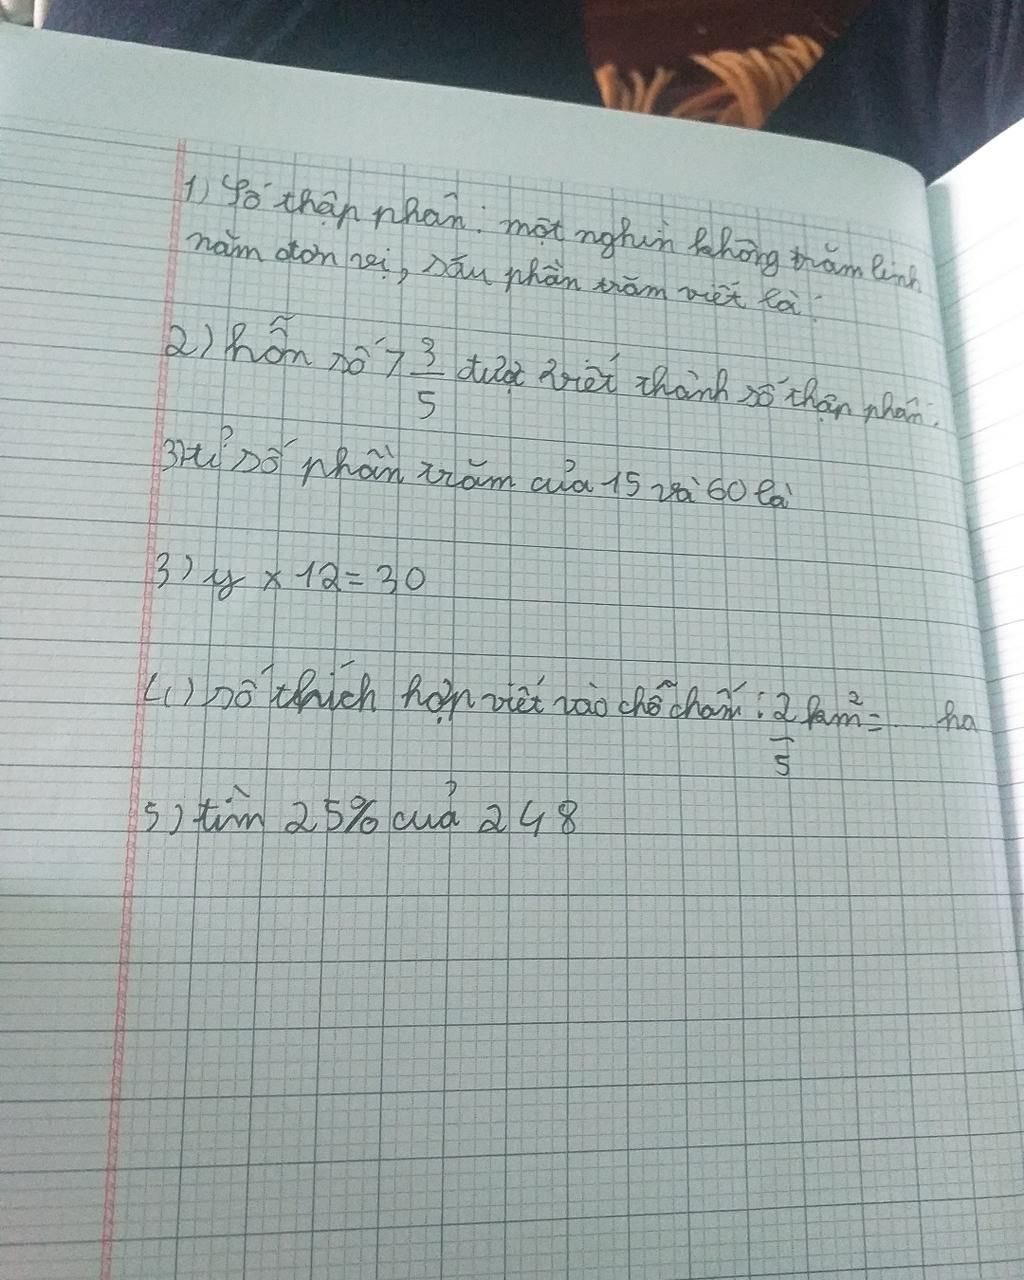 1) Số thập phân: một nghìn không trăm linh
năm đơn vị, sáu phần trăm viết là:
2) hỗn số 7 3/5 được viết thành số thập phân:
3) tỉ số phần trăm của 15 và 60 là
3) y x 12 = 30
4) số thích hợp viết vào chỗ chấm: 2/5 km² = ... ha
5) tìm 25% cuả 248